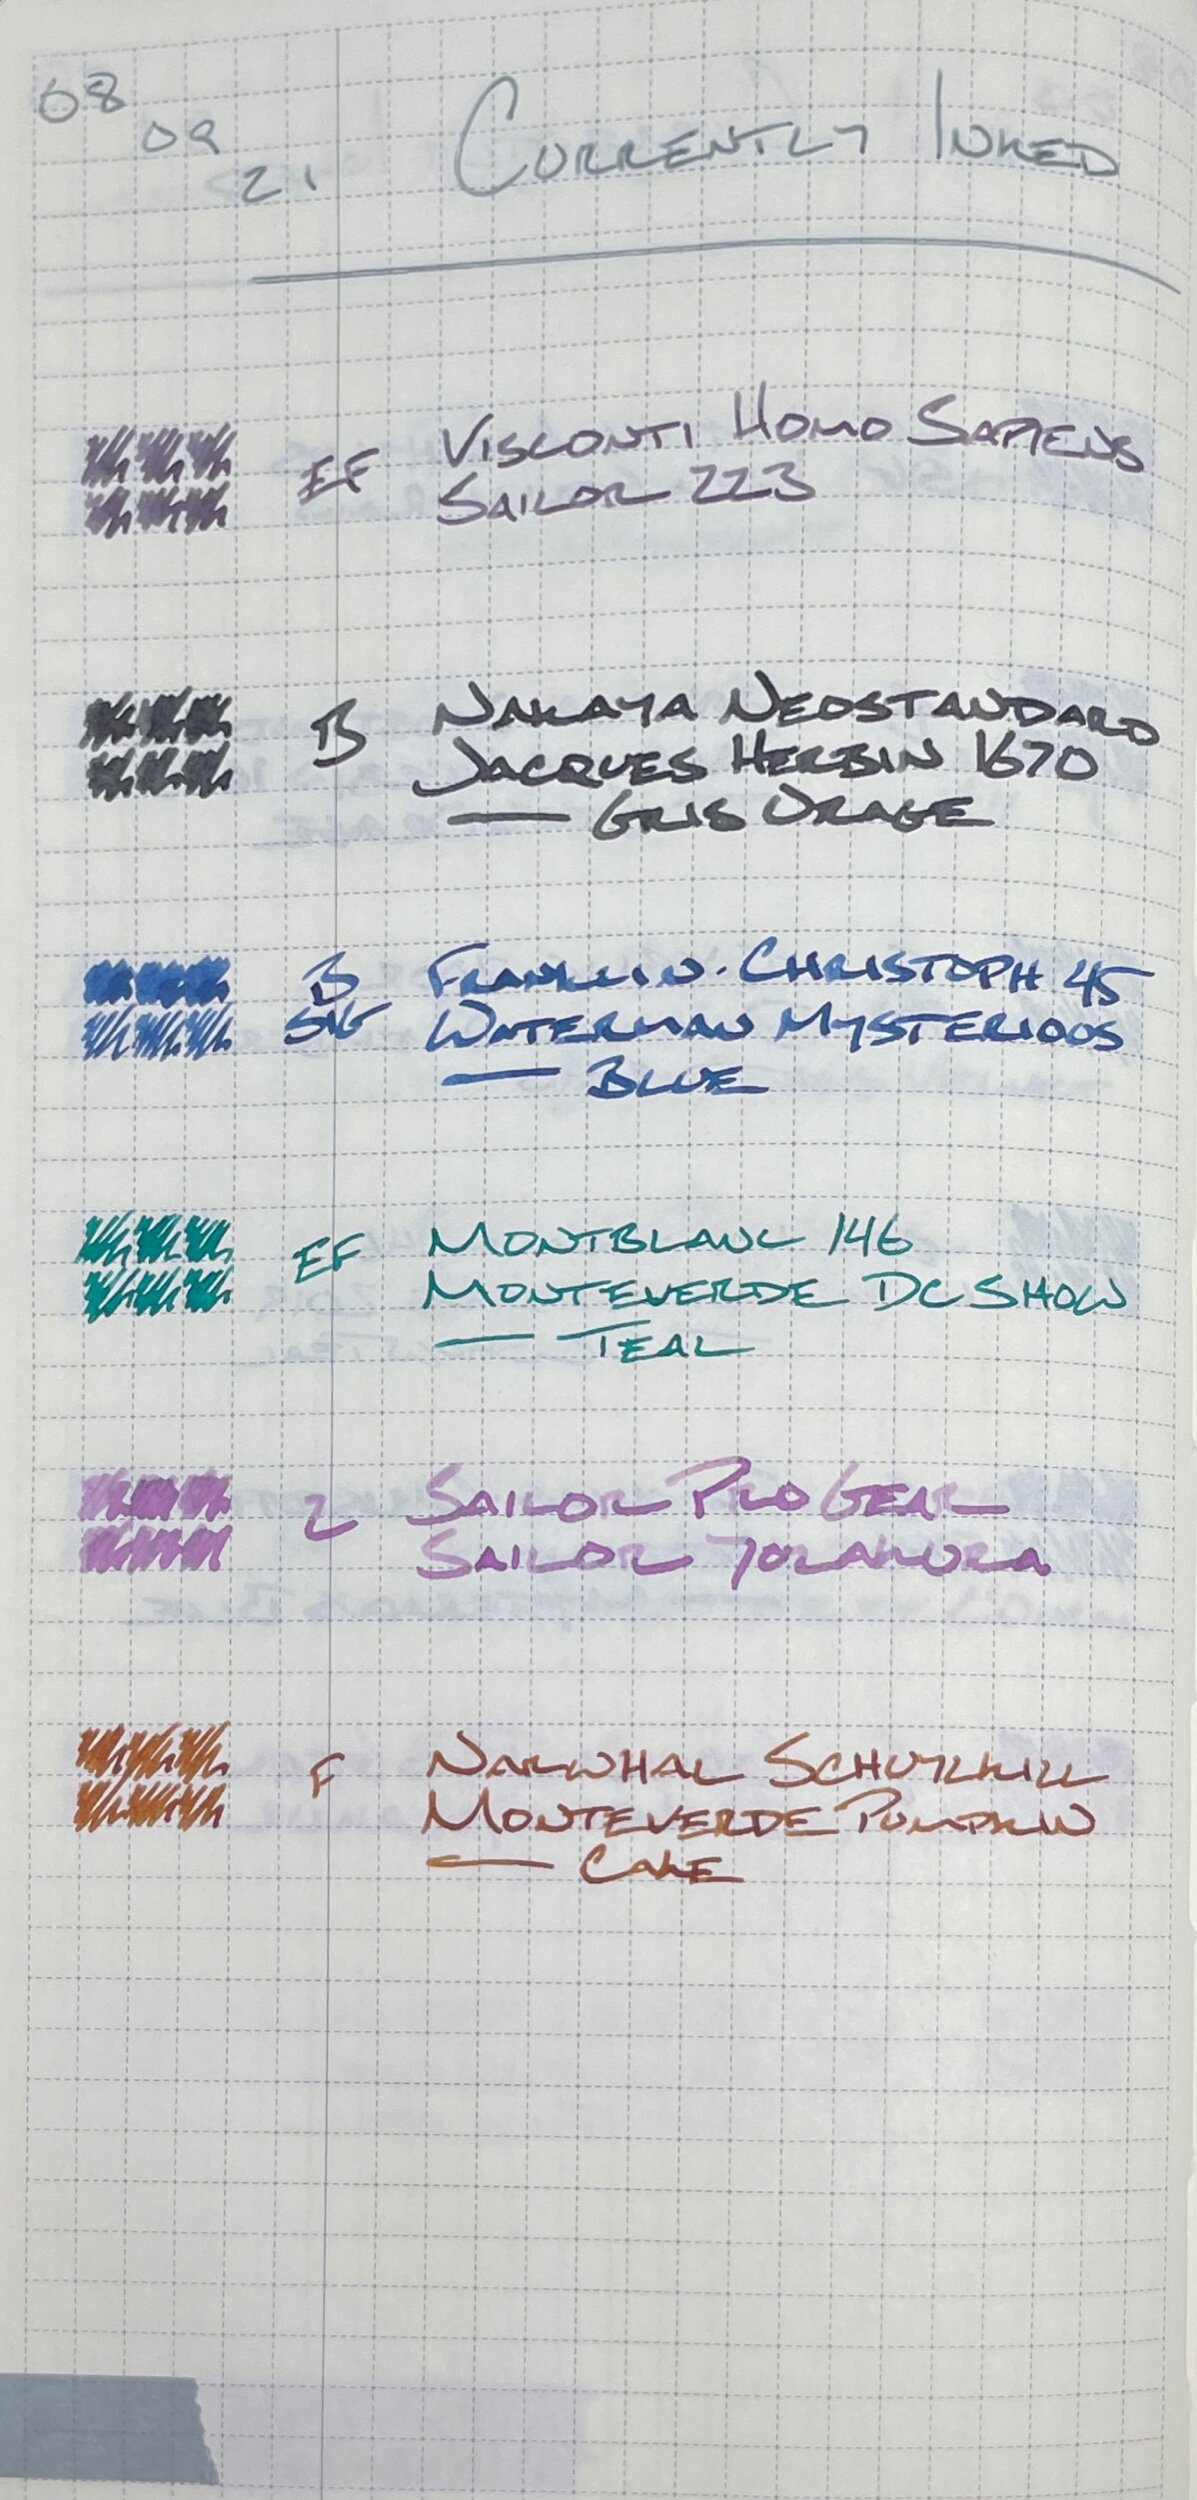 08
09
21
Currently Inked
EF Visconti Homo Sapiens
Sailor 223
B Nakaya Neostandard
Jacques Herbin 1670
— Gris Orage
B Franklin-Christoph 45
SIG Waterman Mysterious
— Blue
EF Montblanc 146
Monteverde DC Show
— Teal
Z Sailor Pro Gear
Sailor Yozakura
F Narwhal Schuylkill
Monteverde Pumpkin
— Cake